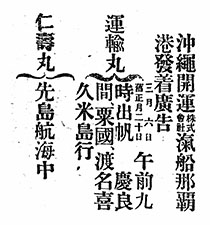 沖繩開運株式會社滊船那覇
港發着廣告
三月六日
舊正月二十日
午前九
時出帆　慶良
間粟國渡名喜
久米島行
運輸丸
仁壽丸
先島航海中